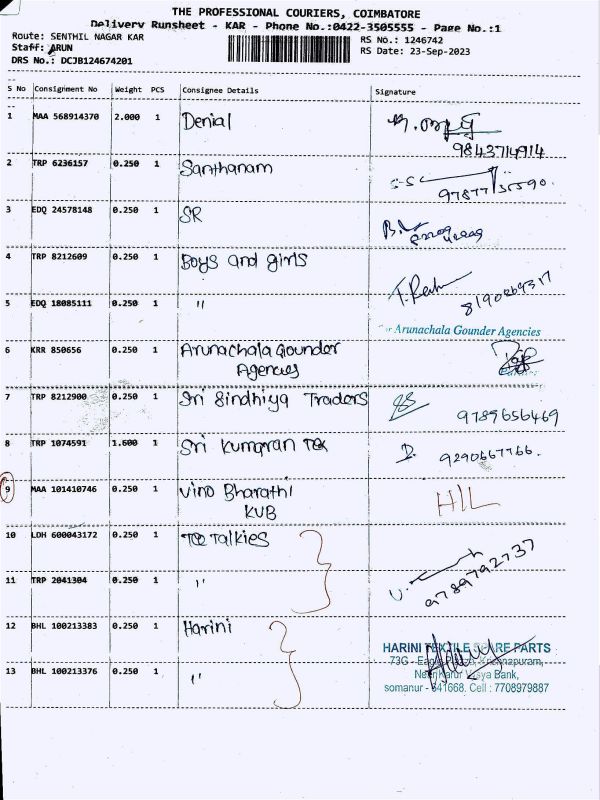 THE PROFESSIONAL COURIERS, COIMBATORE
Delivery Runsheet - KAR - Phone No.:0422-3505555 - Page No.:1
Route: SENTHIL NAGAR KAR
RS No.: 1246742
Staff: ARUN
RS Date: 23-Sep-2023
DRS No.: DCJB124674201
S No Consignment No Weight PCS Consignee Details Signature
1 MAA 568914370 2.000 1 Denial
9843714914
2 TRP 6236157 0.250 1 Santhanam
3 EDQ 24578148 0.250 1 SR
4 TRP 8212609 0.250 1 Boys and girls
8190269317
5 EDQ 18085111 0.250 1 "
Arunachala Gounder Agencies
6 KRR 850656 0.250 1 Arunachala Gounder
Agencies
7 TRP 8212900 0.250 1 Sri Sindhiya Traders
9789656469
8 TRP 1074591 1.600 1 Sri Kumaran Tex
D. 9290667766.
9 MAA 101410746 0.250 1 Vino Bharathi HIL
KVB
10 LDH 600043172 0.250 1 Tex Talkies
9789792737
11 TRP 2041304 0.250 1 "
12 BHL 100213383 0.250 1 Harini
HARINI TEXTILE SPARE PARTS
73G -
13 BHL 100213376 0.250 1 "
Vysya Bank,
somanur - 641668. Cell : 7708979887